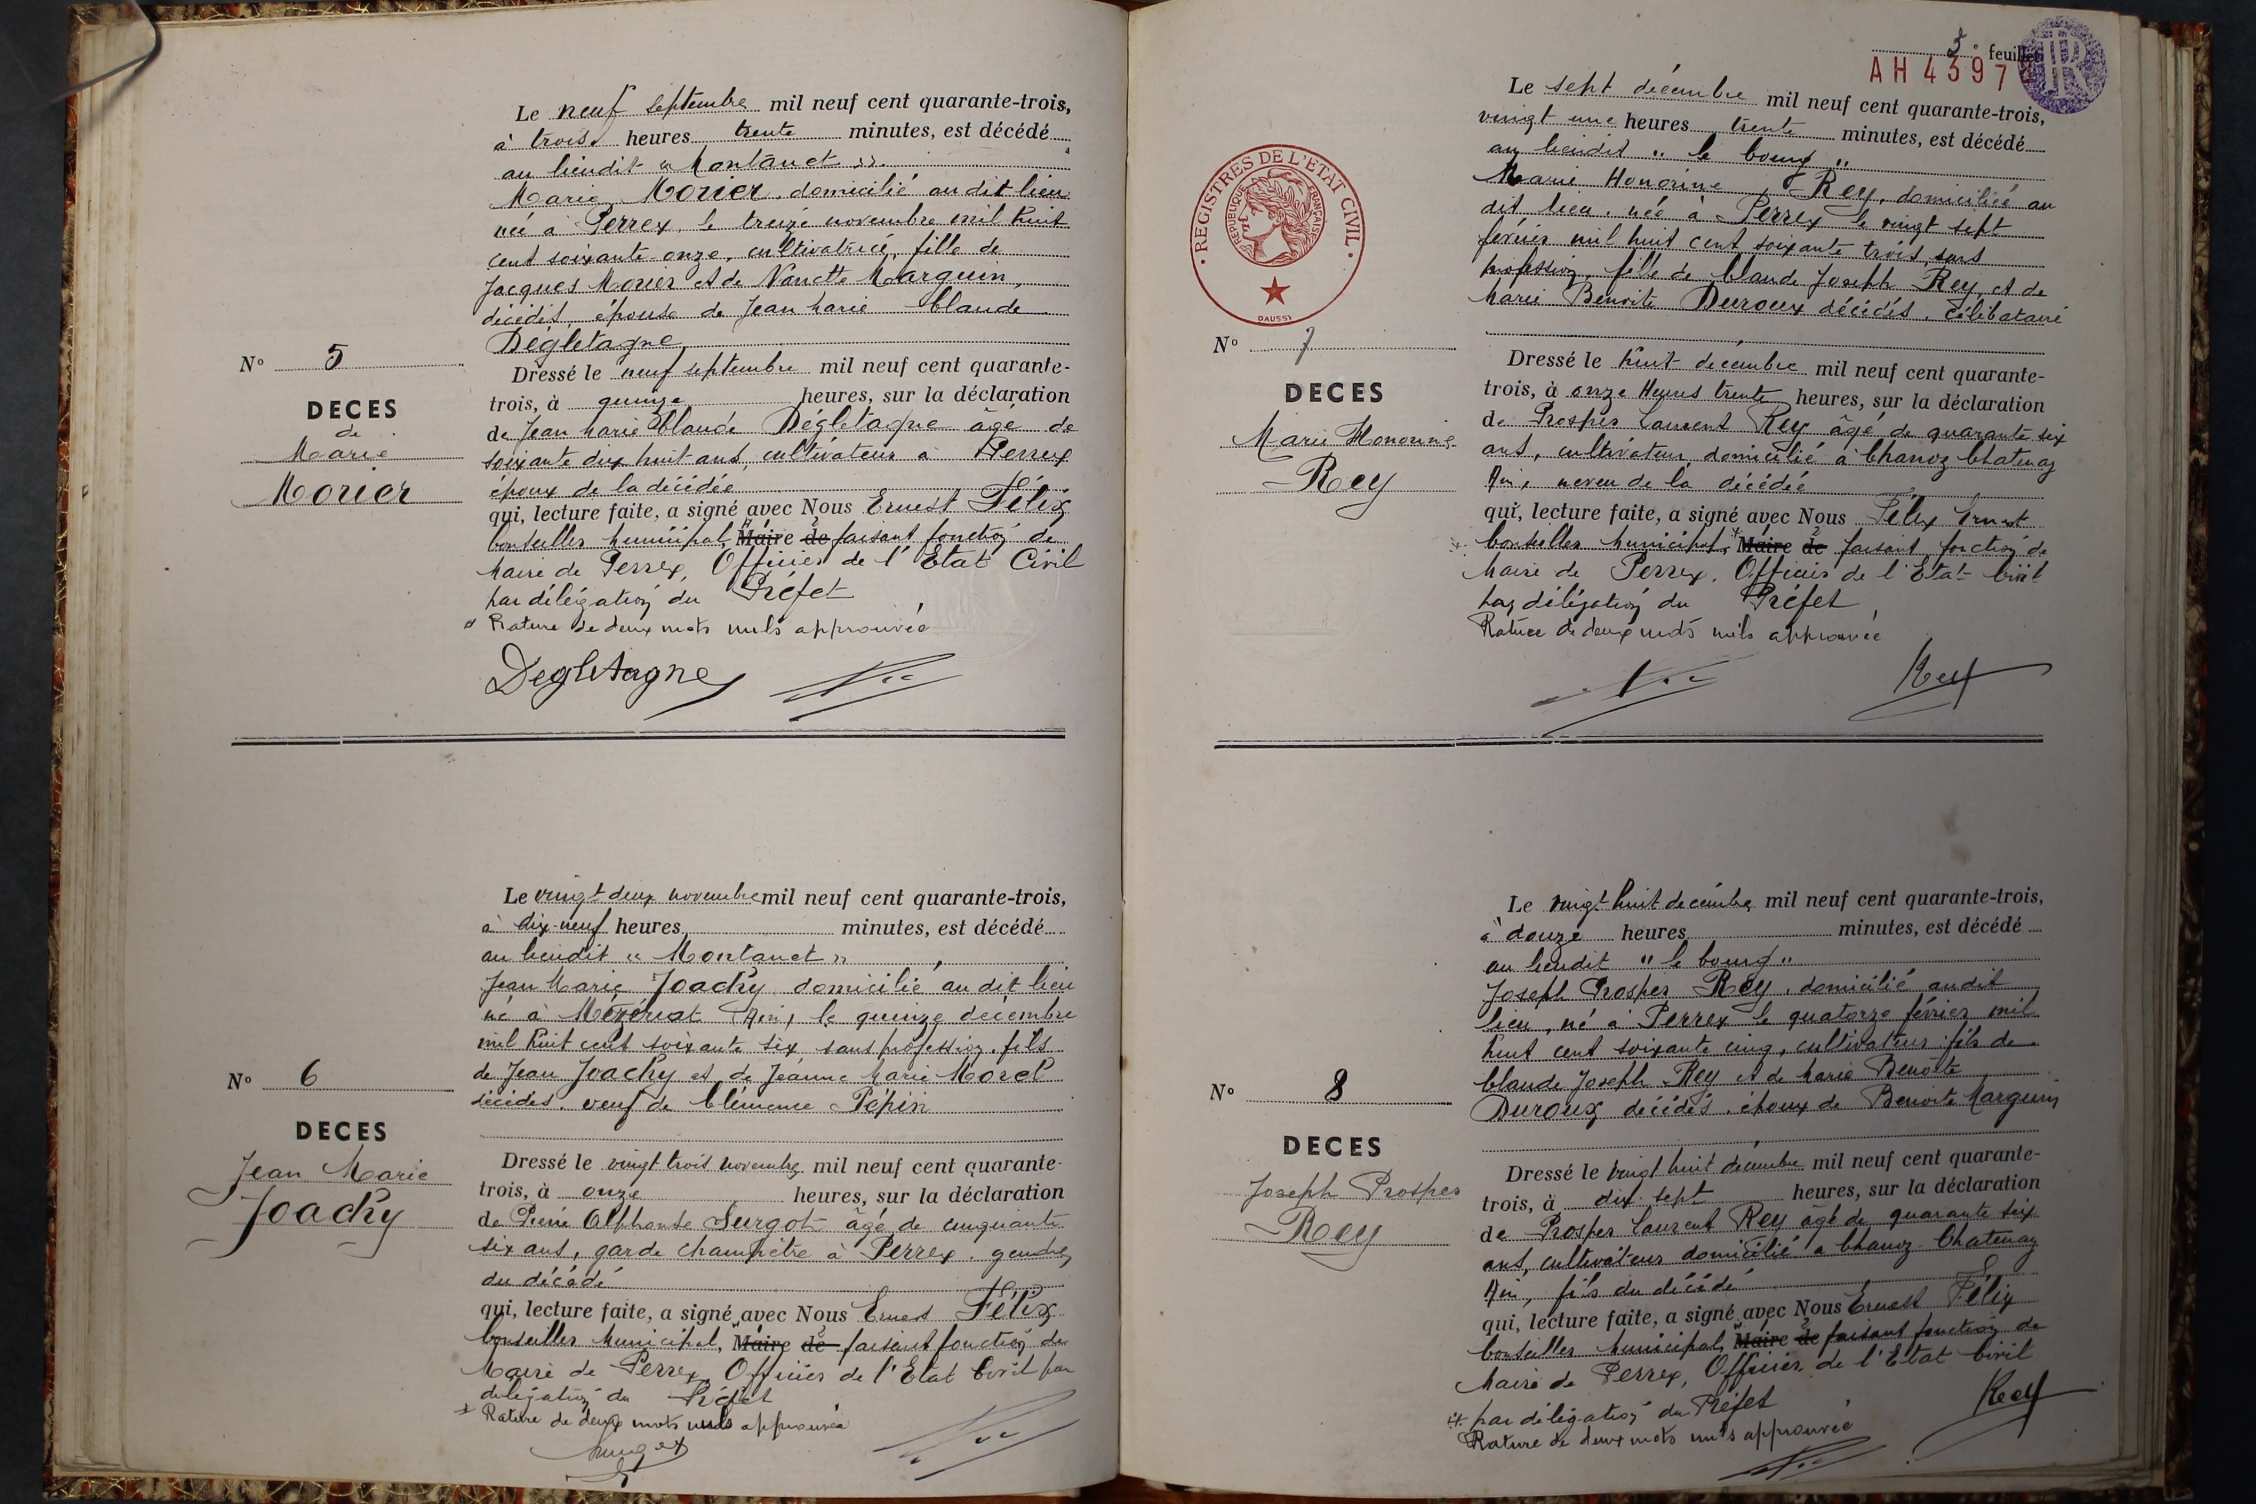 Le neuf septembre mil neuf cent quarante-trois,
à trois heures trente minutes, est décédé
au lieudit « Montanet ».
Marie Morier, domicilié au dit lieu
née à Perrex, le treize novembre mil huit
cent soixante-onze, cultivatrice, fille de
Jacques Morier et de Nanette Marguin,
décédés, épouse de Jean Marie Claude
Dégletagne
N° 5
DECES
de
Marie
Morier
Dressé le neuf septembre mil neuf cent quarante-
trois, à quinze heures, sur la déclaration
de Jean Marie Claude Dégletagne âgé de
soixante dix huit ans, cultivateur à Perrex
époux de la décédée
qui, lecture faite, a signé avec Nous Ernest Félix
Conseiller Municipal, Maire de faisant fonction de
Maire de Perrex, Officier de l'Etat Civil
par délégation du Préfet
Rature de deux mots nuls approuvée
Degletagne
Le vingt deux novembre mil neuf cent quarante-trois,
à dix-neuf heures minutes, est décédé
au lieudit « Montanet »
Jean Marie Joachy domicilié au dit lieu
né à Mézériat Ain, le quinze décembre
mil huit cent soixante six sans profession, fils
de Jean Joachy et de Jeanne Marie Morel
décédés. veuf de Clémence Pépin
N° 6
DECES
Jean Marie
Joachy
Dressé le vingt trois novembre mil neuf cent quarante-
trois, à onze heures, sur la déclaration
de Pierre Alphonse Surgot âgé de cinquante
six ans, garde champêtre à Perrex. gendre
du décédé
qui, lecture faite, a signé avec Nous Ernest Félix
Conseiller Municipal, Maire de faisant fonction de
Maire de Perrex, Officier de l'Etat Civil par
délégation du Préfet
Rature de deux mots nuls approuvée
Surgot
5e feuillet
AH 4397
IR
Le sept décembre mil neuf cent quarante-trois,
vingt une heures trente minutes, est décédé
au lieudit " le bourg "
Marie Honorine Rey, domiciliée au
dit lieu. née à Perrex le vingt sept
février mil huit cent soixante trois, sans
profession, fille de Claude Joseph Rey et de
Marie Benoite Duroux décédés. célibataire
REGISTRES DE L'ETAT CIVIL
REPUBLIQUE FRANÇAISE
DAUSSY
N° 7
DECES
Marie Honorine
Rey
Dressé le huit décembre mil neuf cent quarante-
trois, à onze Heures trente heures, sur la déclaration
de Prosper Laurent Rey âgé de quarante six
ans, cultivateur domicilié à Chanoz Chatenay
Ain, neveu de la décédée
qui, lecture faite, a signé avec Nous Félix Ernest
Conseiller Municipal, Maire de faisant fonction de
Maire de Perrex, Officier de l'Etat Civil
par délégation du Préfet
Rature de deux mots nuls approuvée
Rey
Le vingt huit décembre mil neuf cent quarante-trois,
à douze heures minutes, est décédé
au lieudit " le bourg "
Joseph Prosper Rey, domicilié audit
lieu, né à Perrex le quatorze février mil
huit cent soixante cinq, cultivateur fils de
Claude Joseph Rey et de Marie Benoite
Duroux décédés. époux de Benoite Marguin
N° 8
DECES
Joseph Prosper
Rey
Dressé le vingt huit décembre mil neuf cent quarante-
trois, à dix-sept heures, sur la déclaration
de Prosper Laurent Rey âgé de quarante six
ans, cultivateur domicilié à Chanoz-Chatenay
Ain, fils du décédé
qui, lecture faite, a signé avec Nous Ernest Félix
Conseiller Municipal, Maire de faisant fonction de
Maire de Perrex, Officier de l'Etat Civil
par délégation du Préfet
Rature de deux mots nuls approuvée
Rey